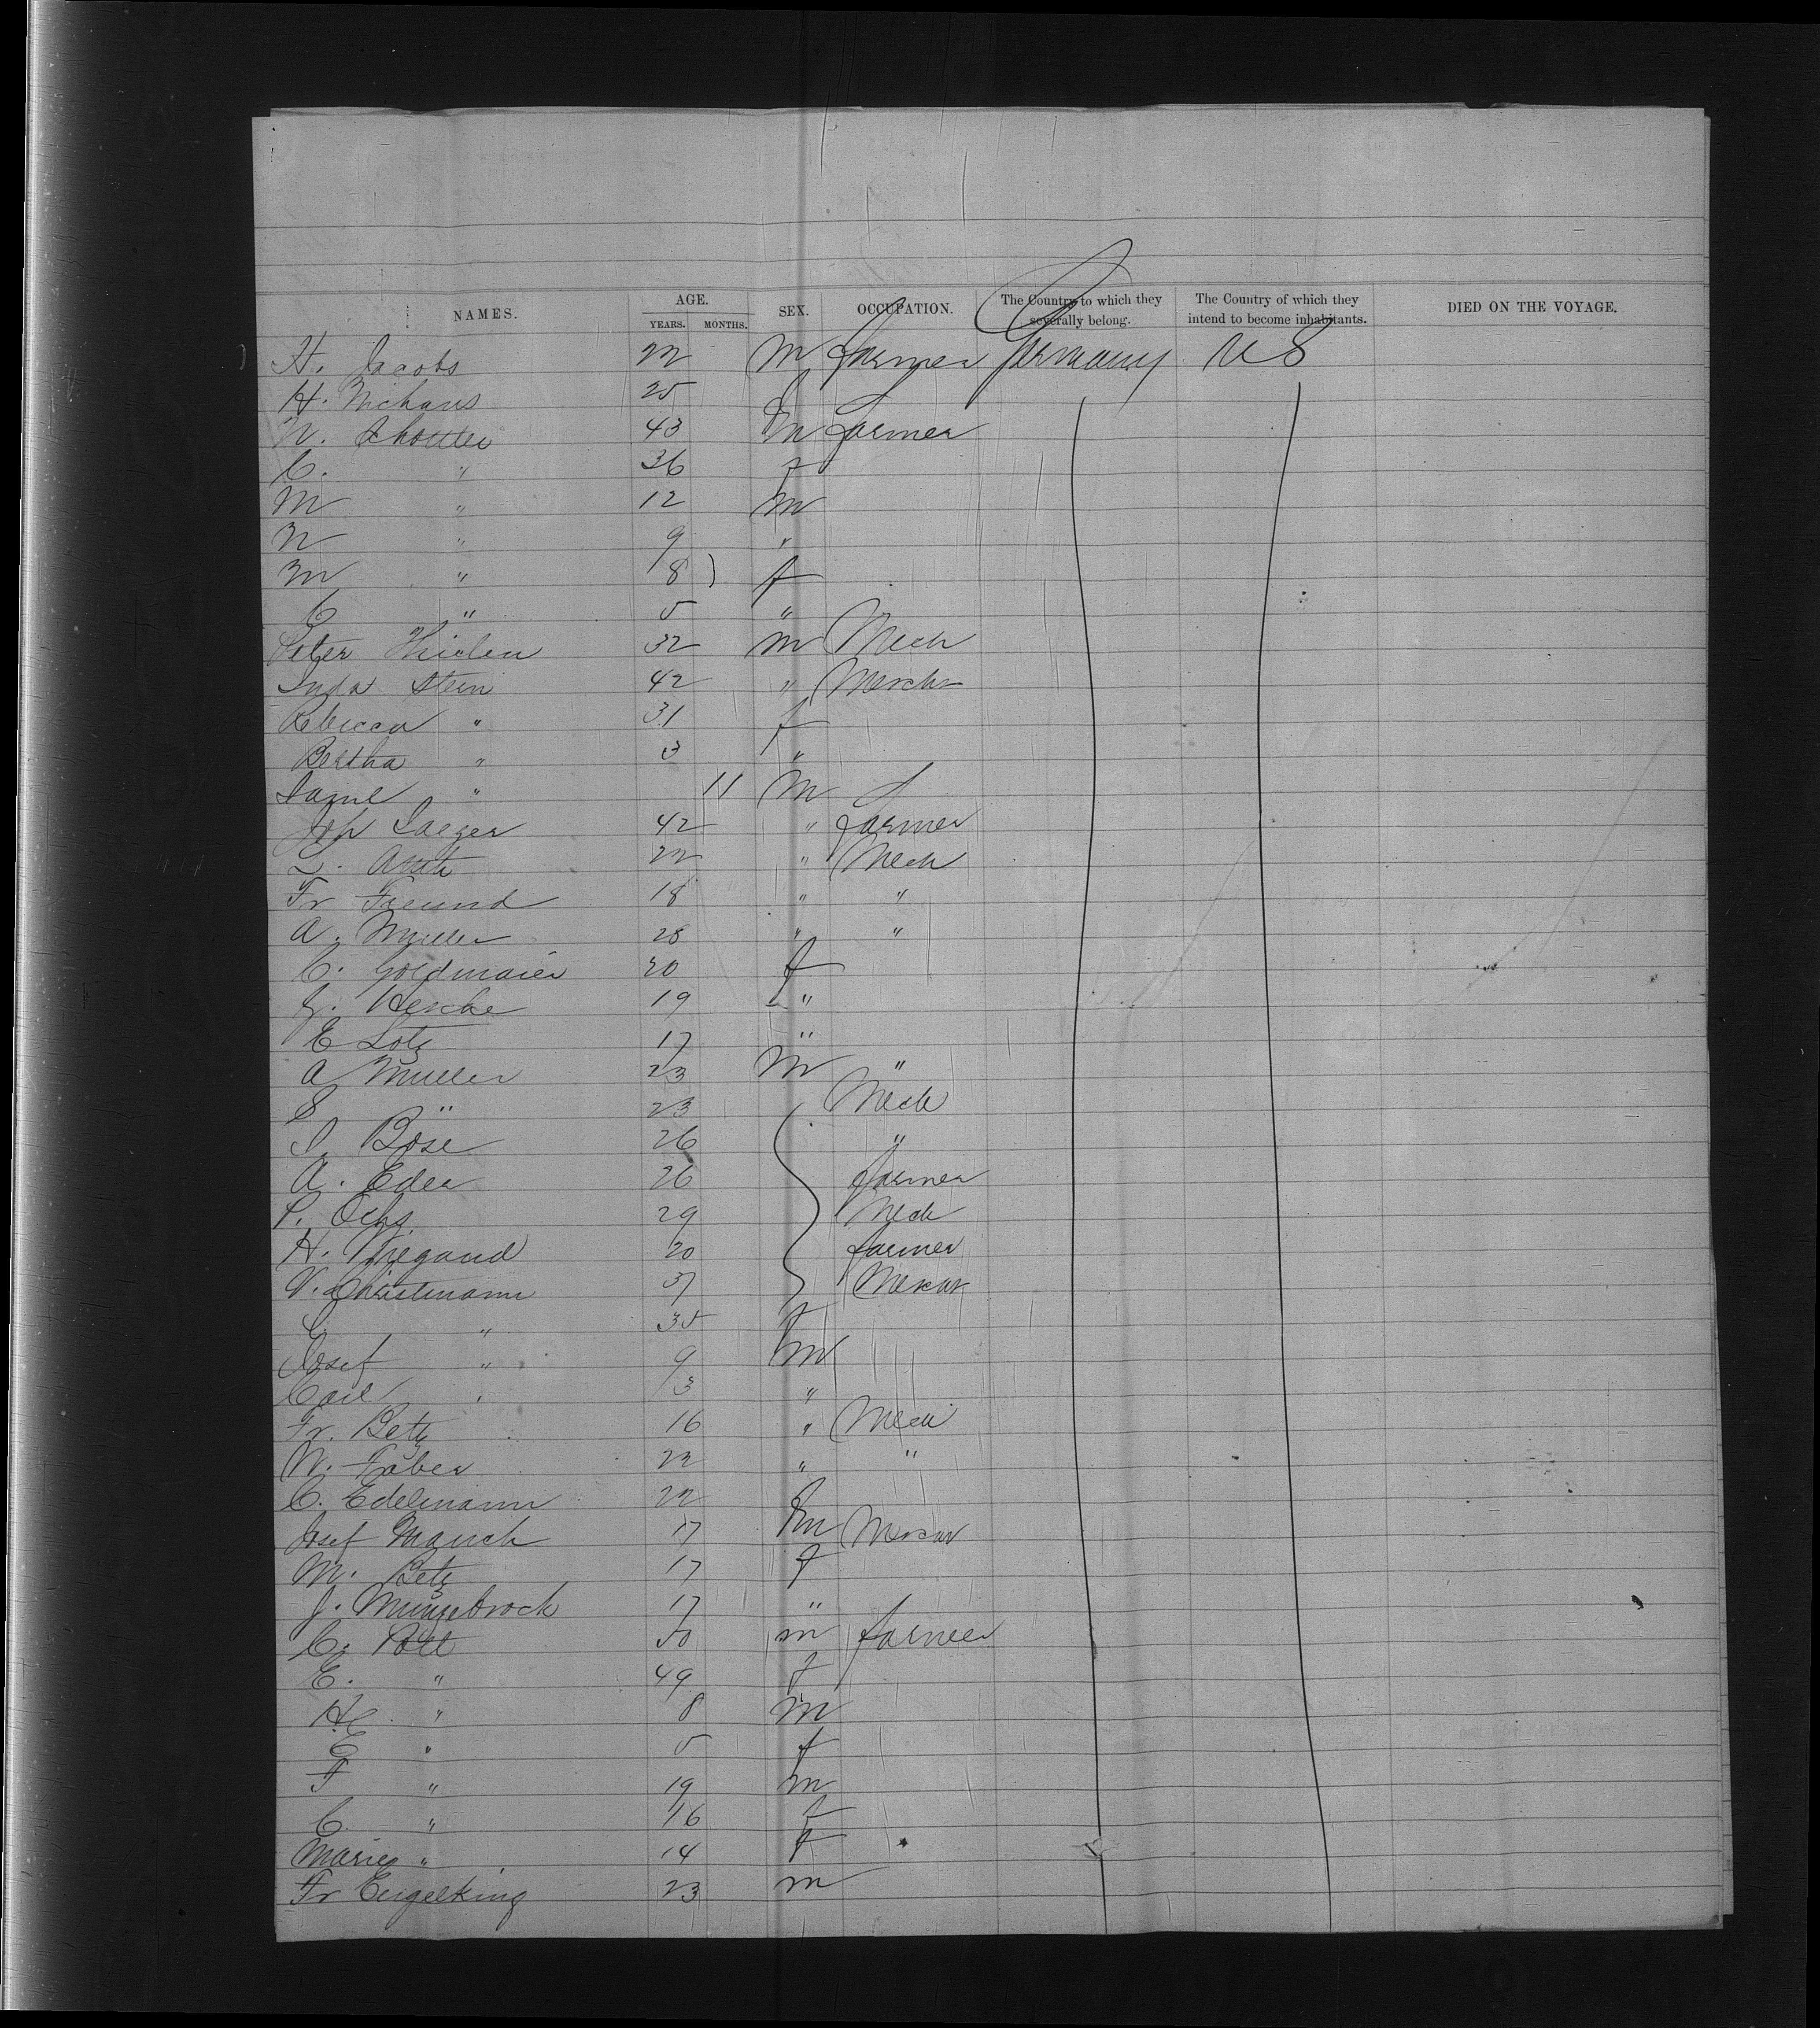 NAMES. AGE. YEARS. MONTHS. SEX. OCCUPATION. The Country to which they severally belong. The Country of which they intend to become inhabitants. DIED ON THE VOYAGE.
H. Jacobs 22 m farmer Germany U S
H. Niehaus 25 f
N. Schouller 43 m farmer
C. " 36 f
M " 12 m
N " 9 "
M " 8 f
C " 5 "
Peter Thielen 32 m Mech
Stein 42 " Merch
Rebecca " 31 f
Bertha " 3 "
Saml " 11 m
Joh Saeger 42 " farmer
L. 22 " Mech
Fr Freund 18 " "
A. Muller 28 " "
C. Goldmaier 20 f
G. Hesche 19 "
E Lotz 17 "
A Muller 23 m "
S " 23 Mech
J. Böse 26 "
A. Eder 26 farmer
P. Ochs 29 Mech
H. Wiegand 20 farmer
V. Christmann 37 Merch
C. " 35 f
Josef " 9 m
Carl " 3 "
Fr. Betz 16 " Mech
W. Faber 22 " "
C. Edelmann 22 f
Josef Mauch 17 m Merch
M. Betz 17 f
J. Mungebrock 17 "
C. Pott 50 m farmer
E. " 49 f
H " 8 m
E " 5 f
F " 19 m
C. " 16 f
Marie " 14 f
Fr Engelking 23 m